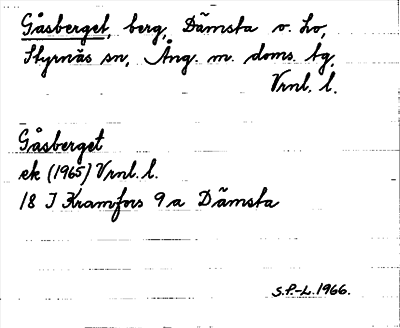 Gåsberget, berg, Dämsta o. Lo,
Styrnäs sn, Ång. m. doms. tg,
Vrnl. l.
Gåsberget
ek (1965) Vrnl. l.
18 I Kramfors 9 a Dämsta
S.P.-L. 1966.